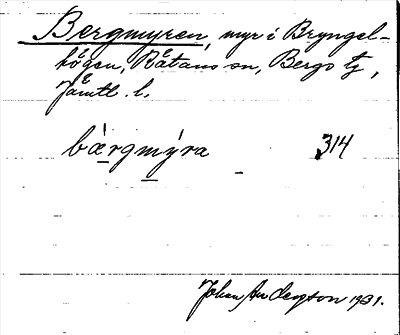 Bergmyren, myr i Bryngel-
högen, Råtans sn, Bergs tg,
Jämtl. l.
bærgmýra 314
Johan Anderzson 1931.